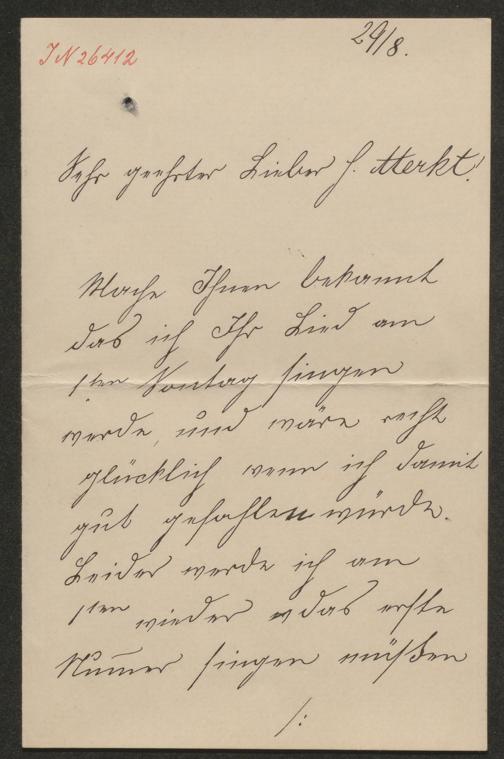 29/8.
IN 26412
Sehr geehrter Lieber H. Merkt!
Mache Ihnen bekannt
das ich Ihr Lied am
1ten Sontag singen
werde, und wäre recht
glücklich wenn ich damit
gut gefahlen würde.
Leider werde ich am
1ten wieder das erste
Numer singen müßen
/: